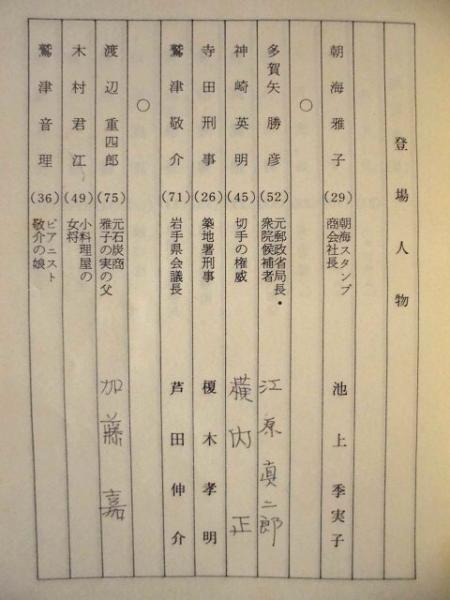 登場人物
朝海雅子 (29) 朝海スタンプ商会社長 池上季実子
○
多賀矢勝彦 (52) 元郵政省局長・衆院候補者 江原真二郎
神崎英明 (45) 切手の権威 横内正
寺田刑事 (26) 築地署刑事 榎木孝明
鷲津敬介 (71) 岩手県会議長 芦田伸介
○
渡辺重四郎 (75) 元石炭商 雅子の実の父 加藤嘉
木村君江 (49) 小料理屋の女将
鷲津音理 (36) ピアニスト 敬介の娘